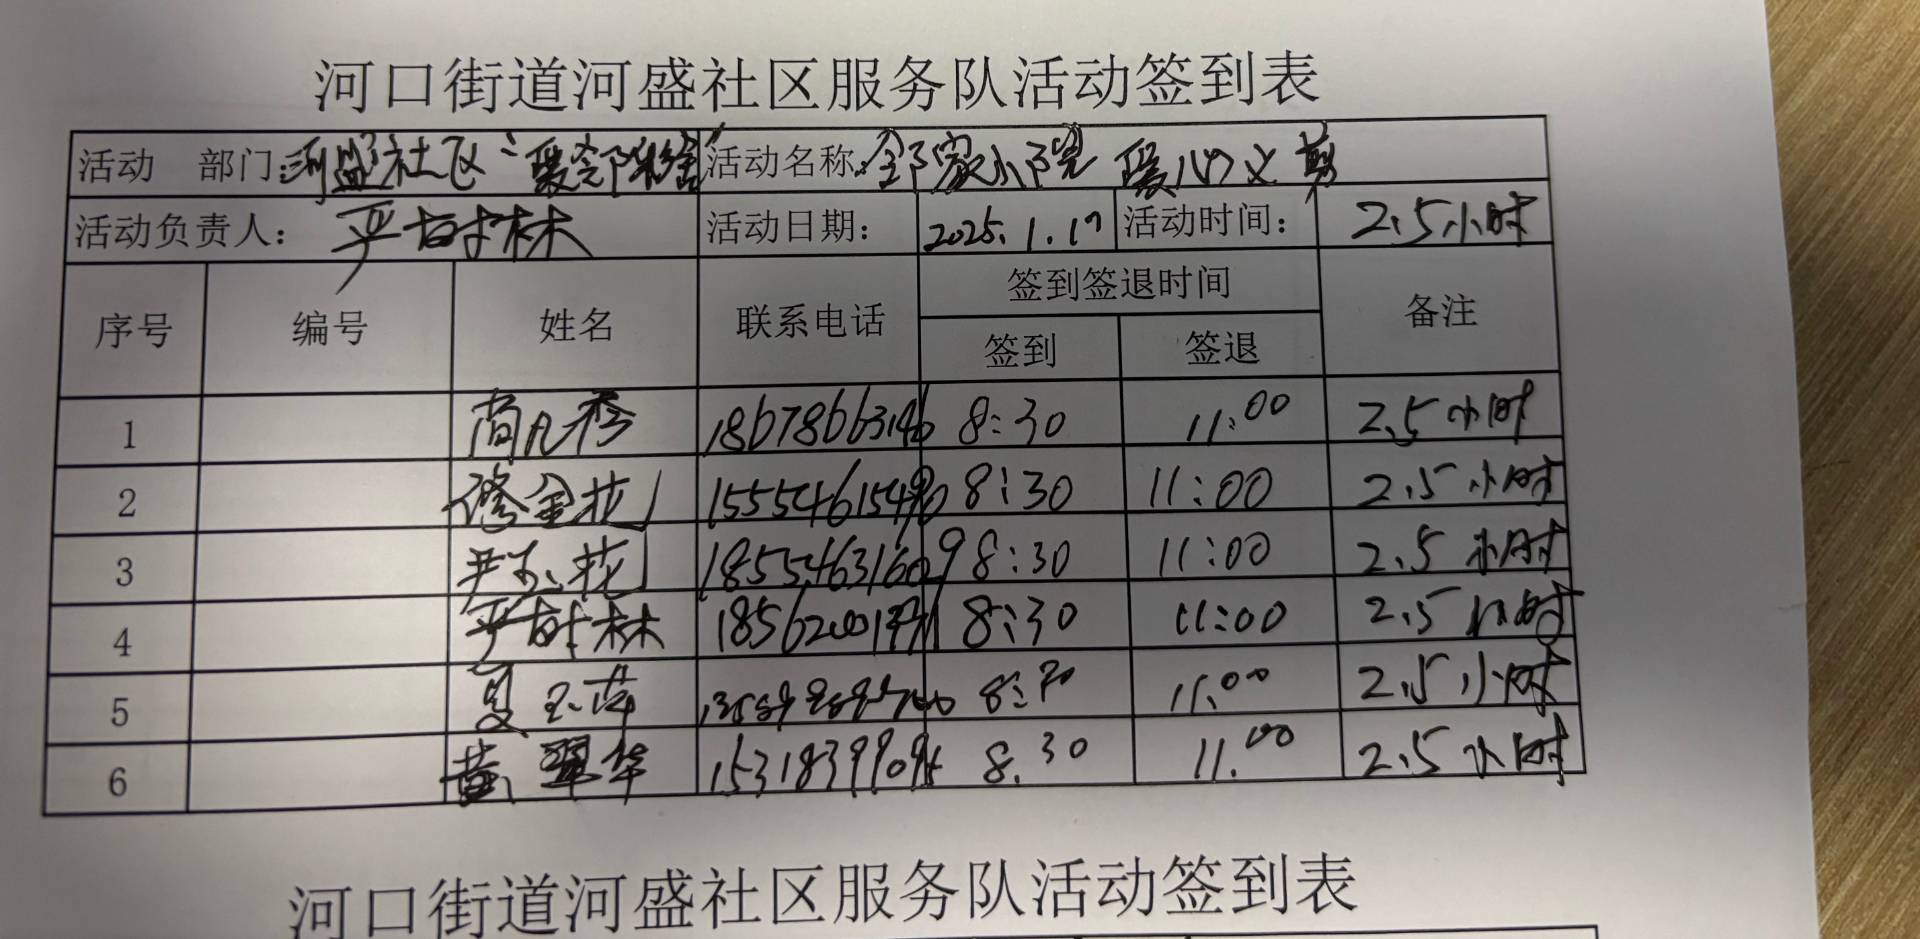 河口街道河盛社区服务队活动签到表
活动 部门:河盛社区“暖 活动名称:邻家小院 暖心义剪
活动负责人: 严树林 活动日期: 2025.1.17 活动时间: 2.5小时
序号 编号 姓名 联系电话 签到签退时间 备注
签到 签退
1 8:30 11:00 2.5小时
2 修金花 8:30 11:00 2.5小时
3 尹玉花 18554631609 8:30 11:00 2.5小时
4 严树林 8:30 11:00 2.5小时
5 夏玉萍 8:30 11:00 2.5小时
6 黄翠华 8:30 11:00 2.5小时
河口街道河盛社区服务队活动签到表